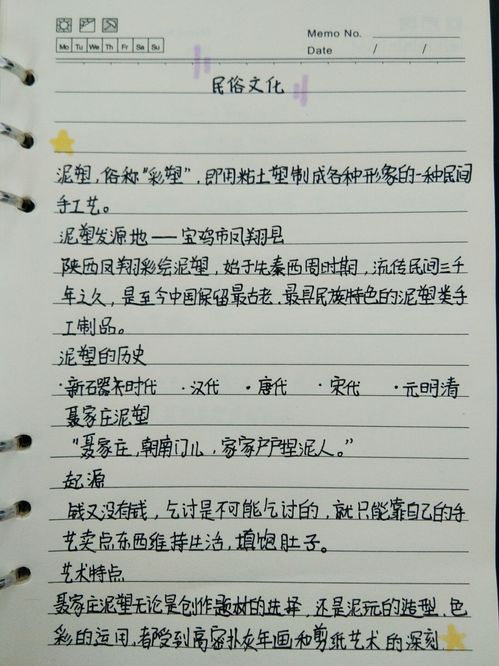 Memo No.
Mo Tu We Th Fr Sa Su
Date / /
民俗文化
泥塑，俗称"彩塑"，即用粘土塑制成各种形象的一种民间
手工艺。
泥塑发源地——宝鸡市凤翔县
陕西凤翔彩绘泥塑，始于先秦西周时期，流传民间三千
年之久，是至今中国保留最古老、最具民族特色的泥塑类手
工制品。
泥塑的历史
·新石器时代 ·汉代 ·唐代 ·宋代 ·元明清
聂家庄泥塑
"聂家庄，朝南门儿，家家户户捏泥人。"
起源
钱又没有钱，乞讨是不可能乞讨的，就只能靠自己的手
艺卖点东西维持生活，填饱肚子。
艺术特点
聂家庄泥塑无论是创作题材的选择，还是泥玩的造型、色
彩的运用，都受到高密扑灰年画和剪纸艺术的深刻